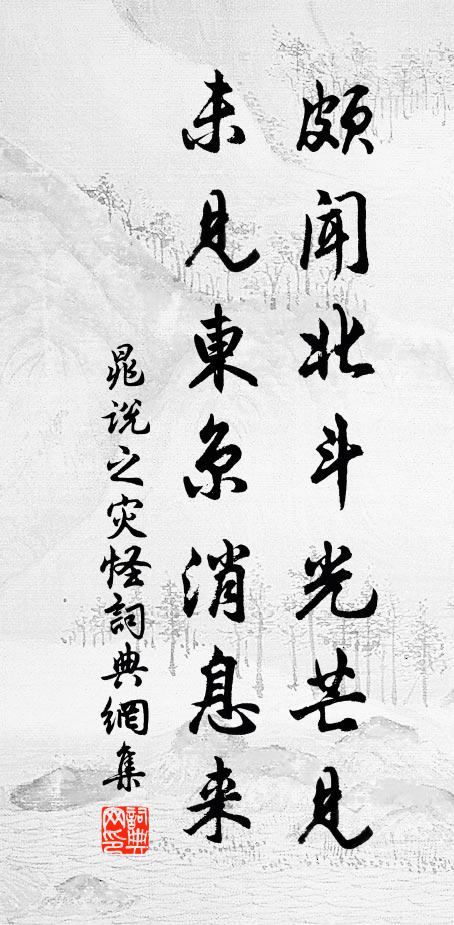 頗闻北斗光芒見
未見東京消息来
晁说之灾怪詞典網集
詞典网印